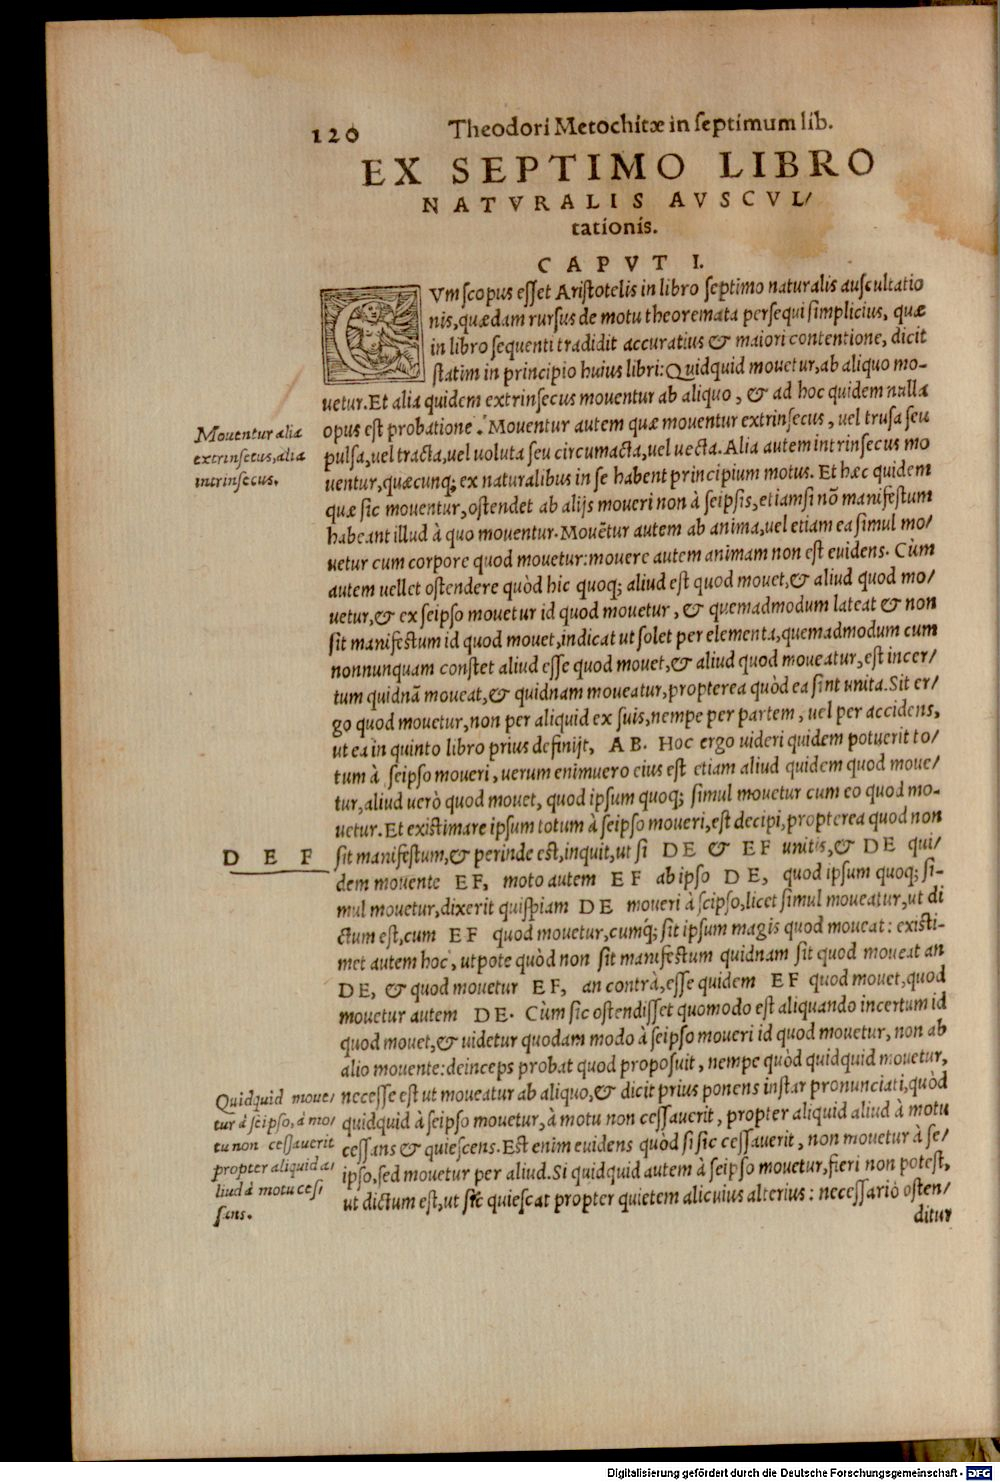 120 Theodori Metochitæ in septimum lib.
EX SEPTIMO LIBRO
NATVRALIS AVSCVL/
tationis.
CAPVT I.
CVm scopus esset Aristotelis in libro septimo naturalis auscultatio
nis, quædam rursus de motu theoremata persequi simplicius, quæ
in libro sequenti tradidit accuratius & maiori contentione, dicit
statim in principio huius libri: Quidquid mouetur, ab aliquo mo-
uetur. Et alia quidem extrinsecus mouentur ab aliquo, & ad hoc quidem nulla
opus est probatione. Mouentur autem quæ mouentur extrinsecus, uel trusa seu
pulsa, uel tracta, uel uoluta seu circumacta, uel uecta. Alia autem intrinsecus mo
uentur, quæcunq; ex naturalibus in se habent principium motus. Et hæc quidem
quæ sic mouentur, ostendet ab alijs moueri non à seipsis, etiamsi nõ manifestum
habeant illud à quo mouentur. Mouẽtur autem ab anima, uel etiam ea simul mo/
uetur cum corpore quod mouetur: mouere autem animam non est euidens. Cùm
autem uellet ostendere quòd hic quoq; aliud est quod mouet, & aliud quod mo/
uetur, & ex seipso mouetur id quod mouetur, & quemadmodum lateat & non
sit manifestum id quod mouet, indicat ut solet per elementa, quemadmodum cum
nonnunquam constet aliud esse quod mouet, & aliud quod moueatur, est incer/
tum quidnã moueat, & quidnam moueatur, propterea quòd ea sint unita. Sit er/
go quod mouetur, non per aliquid ex suis, nempe per partem, uel per accidens,
ut ea in quinto libro prius definijt, AB. Hoc ergo uideri quidem potuerit to/
tum à seipso moueri, uerum enimuero eius est etiam aliud quidem quod moue/
tur, aliud uerò quod mouet, quod ipsum quoq; simul mouetur cum eo quod mo-
uetur. Et existimare ipsum totum à seipso moueri, est decipi, propterea quod non
sit manifestum, & perinde est, inquit, ut si DE & EF unitis, & DE qui/
dem mouente EF, moto autem EF ab ipso DE, quod ipsum quoq; si-
mul mouetur, dixerit quispiam DE moueri à seipso, licet simul moueatur, ut di
ctum est, cum EF quod mouetur, cumq́; sit ipsum magis quod moueat: existi-
met autem hoc, utpote quòd non sit manifestum quidnam sit quod moueat an
DE, & quod mouetur EF, an contrà, esse quidem EF quod mouet, quod
mouetur autem DE. Cùm sic ostendisset quomodo est aliquando incertum id
quod mouet, & uidetur quodam modo à seipso moueri id quod mouetur, non ab
alio mouente: deinceps probat quod proposuit, nempe quòd quidquid mouetur,
necesse est ut moueatur ab aliquo, & dicit prius ponens instar pronunciati, quòd
quidquid à seipso mouetur, à motu non cessauerit, propter aliquid aliud à motu
cessans & quiescens. Est enim euidens quòd si sic cessauerit, non mouetur à se/
ipso, sed mouetur per aliud. Si quidquid autem à seipso mouetur, fieri non potest,
ut dictum est, ut sic quiescat propter quietem alicuius alterius: necessariò osten/
ditur
Mouentur alia
extrinsecus, alia
intrinsecus.
D E F
Quidquid moue/
tur à seipso, à mo/
tu non cessauerit
propter aliquid a/
liud à motu ces/
sans.
Digitalisierung gefördert durch die Deutsche Forschungsgemeinschaft - DFG